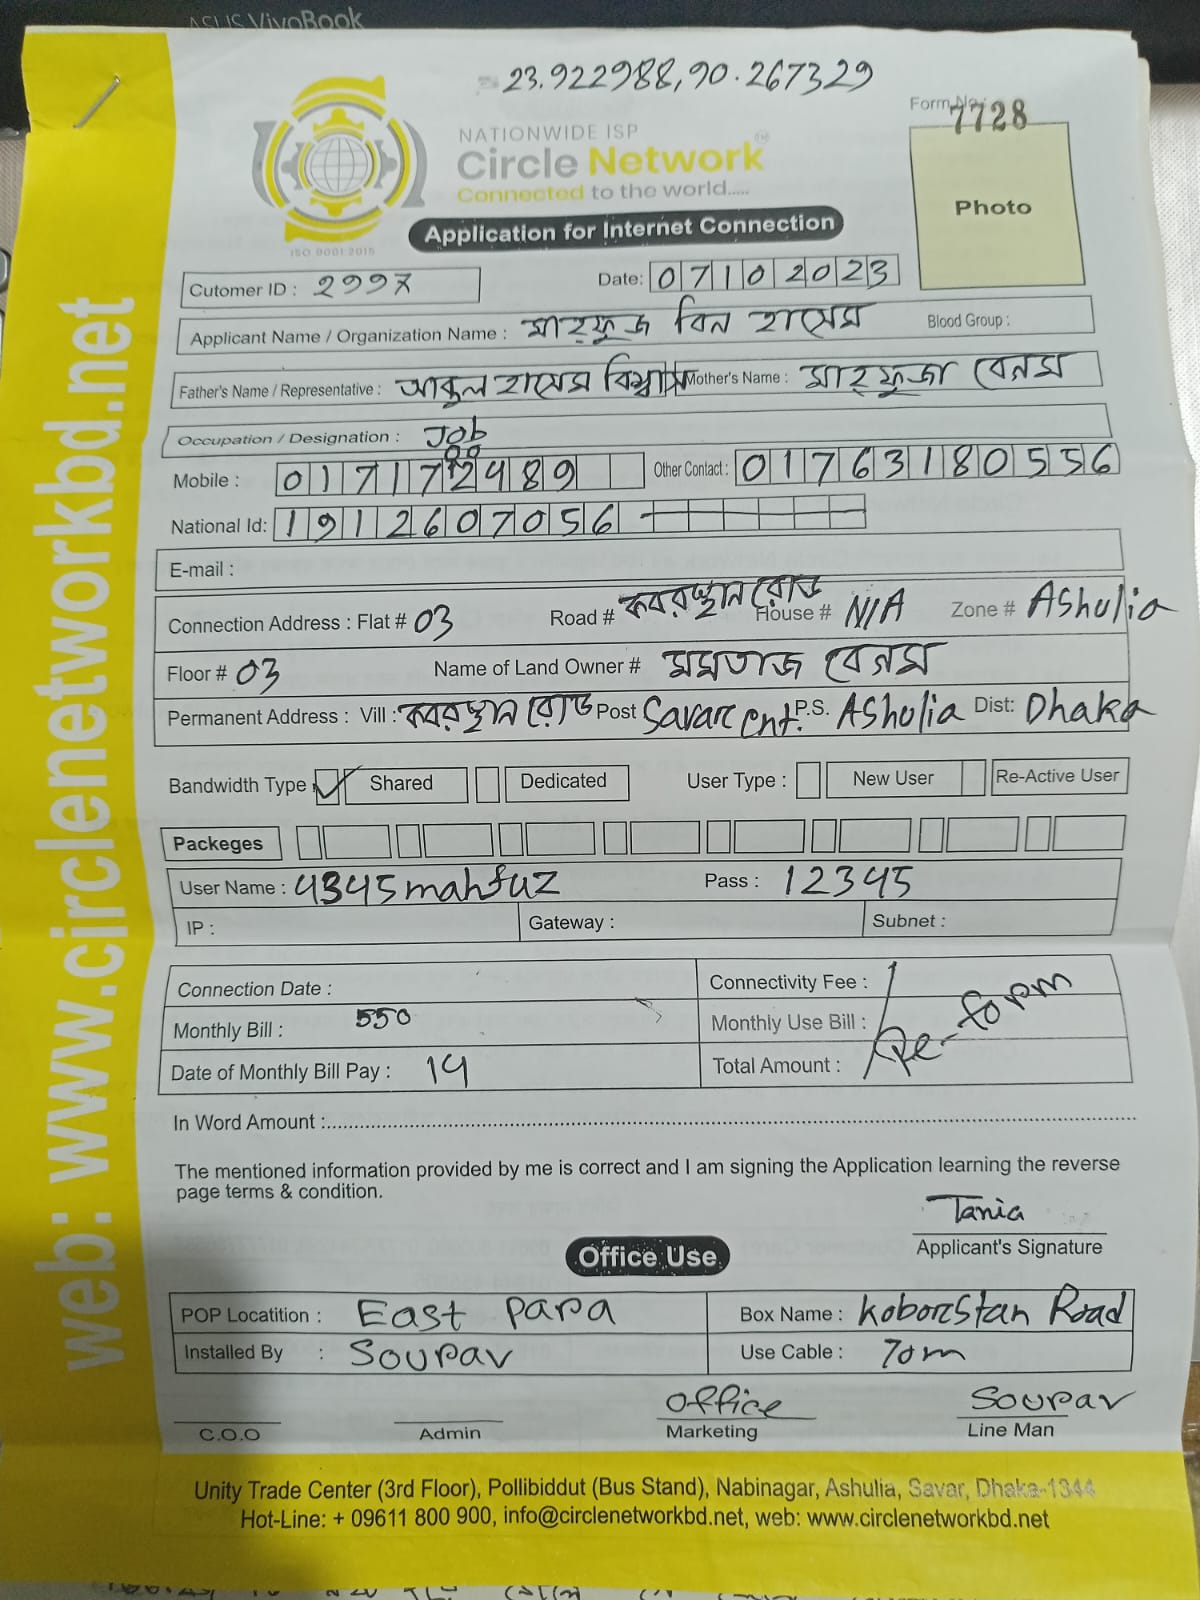 ASUS VivoBook
23.922988,90.267329
Form No: 7728
NATIONWIDE ISP
Circle Network
Connected to the world.....
ISO 9001:2015
Photo
Application for Internet Connection
Cutomer ID : 2997 Date: 07102023
Applicant Name / Organization Name : মাহফুজ বিন হাসেম Blood Group :
Father's Name / Representative : আবুল হাসেম বিশ্বাস Mother's Name : মাহফুজা বেগম
Occupation / Designation : Job
Mobile : 017172489 Other Contact : 01763180556
National Id: 1912607056
E-mail :
Connection Address : Flat # 03 Road # কবরস্থান রোড House # N/A Zone # Ashulia
Floor # 03 Name of Land Owner # মমতাজ বেগম
Permanent Address : Vill : কবরস্থান রোড Post Savar Cnt. P.S. Ashulia Dist: Dhaka
Bandwidth Type Shared Dedicated User Type : New User Re-Active User
Packeges
User Name : 4345mahfuz Pass : 12345
IP : Gateway : Subnet :
Connection Date : Connectivity Fee :
Monthly Bill : 550 Monthly Use Bill : Re-form
Date of Monthly Bill Pay : 14 Total Amount :
In Word Amount :
The mentioned information provided by me is correct and I am signing the Application learning the reverse
page terms & condition.
Tania
Applicant's Signature
Office Use
POP Locatition : East Para Box Name : Koborstan Road
Installed By : Sourav Use Cable : 70m
Office Sourav
C.O.O Admin Marketing Line Man
Unity Trade Center (3rd Floor), Pollibiddut (Bus Stand), Nabinagar, Ashulia, Savar, Dhaka-1344
Hot-Line: + 09611 800 900, info@circlenetworkbd.net, web: www.circlenetworkbd.net
web: www.circlenetworkbd.net